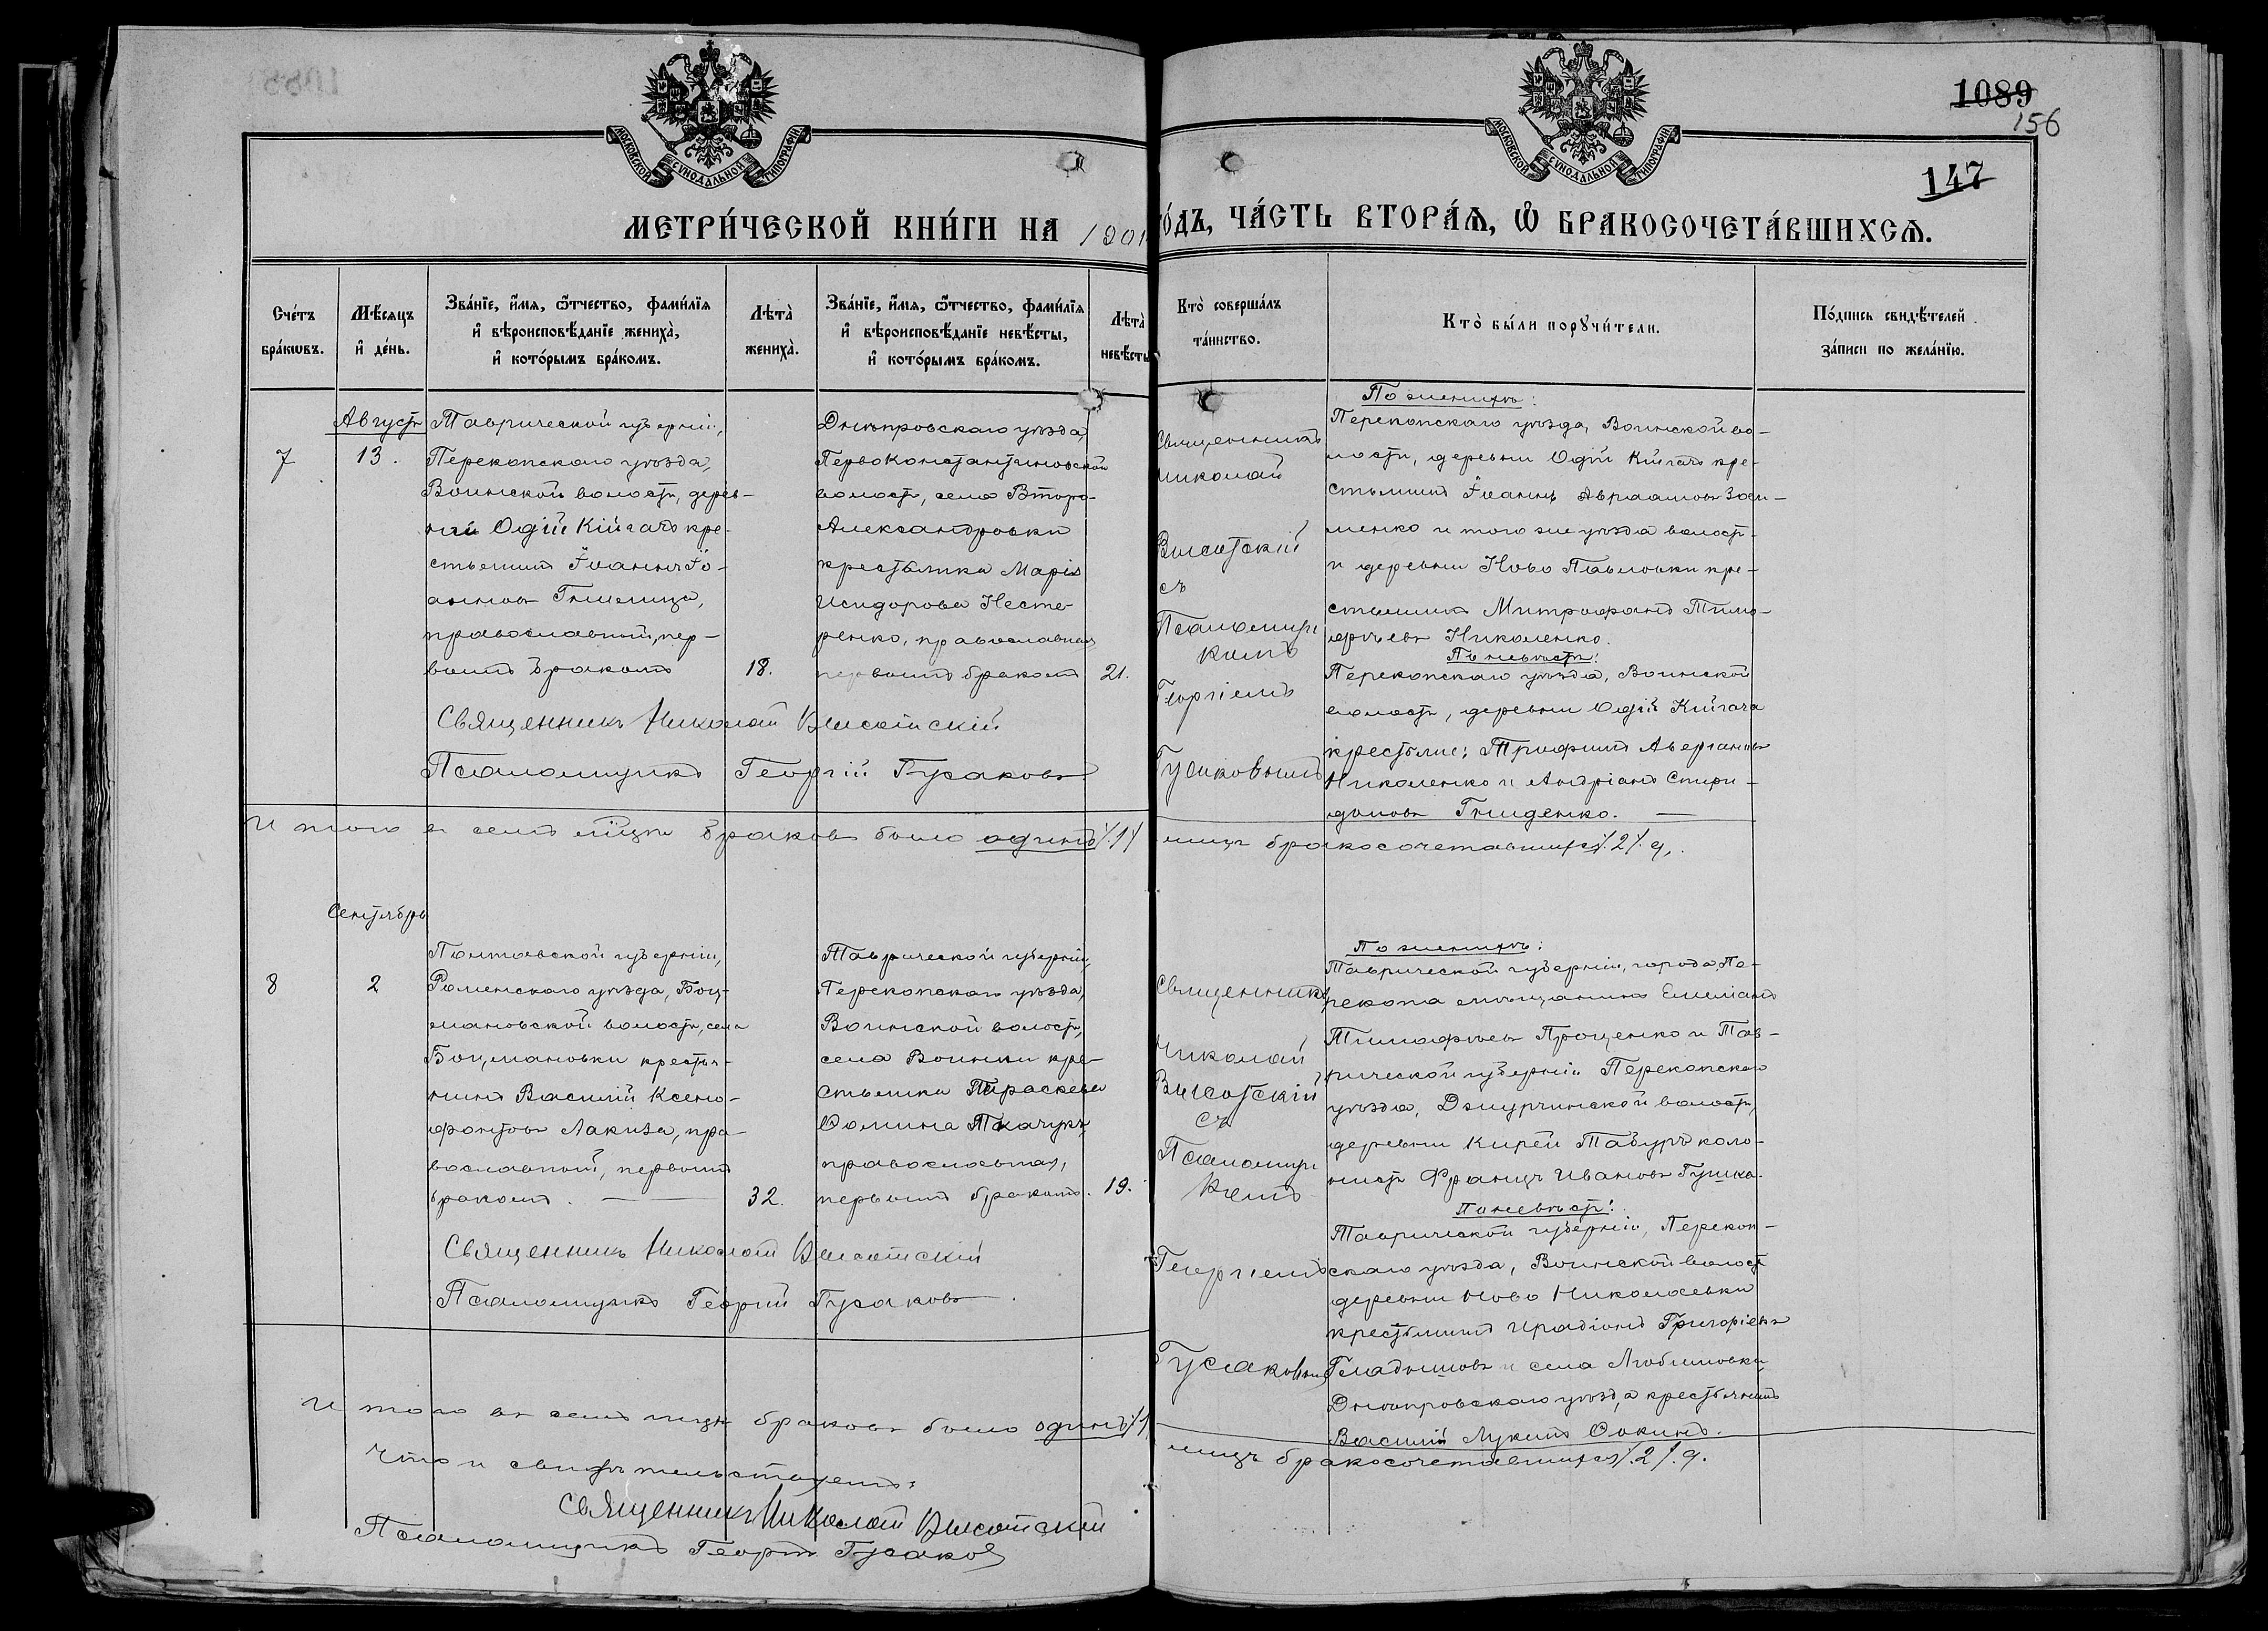 1089
156
147
МОСКОВСКОЙ СѴНОДАЛЬНОЙ ТИПОГРАФІИ
МОСКОВСКОЙ СѴНОДАЛЬНОЙ ТИПОГРАФІИ
МЕТРИ́ЧЕСКОЙ КНИ́ГИ НА 1901
ГО́ДЪ, ЧА́СТЬ ВТОРА́Ѧ, Ѽ БРАКОСОЧЕТА́ВШИХСѦ.
Сче́тъ бра́кѡвъ.
Мѣ́сяцъ и҆ де́нь.
Зва́нїе, и҆́мя, ѻ҆́тчество, фами́лїя и҆ вѣроисповѣ́данїе жениха̀, и҆ кото́рымъ бра́комъ.
Лѣта̀ жениха̀.
Зва́нїе, и҆́мя, ѻ҆́тчество, фами́лїя и҆ вѣроисповѣ́данїе невѣ́сты, и҆ кото́рымъ бра́комъ.
Лѣта̀ невѣ́сты
Кто̀ соверша́лъ та́инство.
Кто̀ бы́ли порꙋчи́тели.
По́дпись свидѣ́телей за́писи по жела́нїю.
Августъ
7
13.
Таврической губерніи,
Перекопскаго уѣзда,
Воинской волости, дерев-
ни Одій Кійгачъ кре-
стьянинъ Іоаннъ Іо-
анновъ
православный, пер-
вымъ бракомъ
18.
Днѣпровскаго уѣзда,
ПервоКонстантиновской
волости, села Второ-
Александровки
крестьянка Марія
Исидорова Несте-
ренко, православная
первымъ бракомъ
21.
Священникъ
Николай
Высотскій
съ
Псаломщи
комъ
Георгіемъ
Гусаковымъ
По женихѣ:
Перекопскаго уѣзда, Воинской во-
лости, деревни Одій Кійгачъ кре-
стьянинъ Іоаннъ Авраамовъ Зай-
ченко и того же уѣзда волости
и деревни Ново Павловки кре-
стьянинъ Митрофанъ Тимо-
фѣевъ Николенко.
По невѣстѣ:
Перекопскаго уѣзда, Воинской
волости, деревни Одій Кійгача
крестьяне: Трофимъ
Николенко и Андріанъ Спири-
доновъ Гниденко.
Священникъ Николай Высотскій
Псаломщикъ Георгій Гусаковъ
Итого въ семъ мѣсяцѣ браковъ было одинъ /.1/
лицъ бракосочетавшихся /.2/. д.
Сентябрь
8
2
Полтавской губерніи,
Роменскаго уѣзда, Боц-
мановской волости, села
Боцмановки крестья-
нинъ Василій Ксено-
фонтовъ Лакиза, пра-
вославный, первымъ
бракомъ.
32.
Таврической губерніи,
Перекопскаго уѣзда,
Воинской волости,
села Воинки кре-
стьянка Параскева
Ѳомина Ткачукъ,
православная,
первымъ бракомъ.
19.
Священникъ
Николай
Высотскій
съ
Псаломщи
комъ
Георгіемъ
Гусаковымъ
По женихѣ:
Таврической губерніи, города Пе-
рекопа мѣщанинъ Емеліанъ
Тимофѣевъ Проценко и Тав-
рической губерніи Перекопскаго
уѣзда, Джурчинской волости,
деревни Кирей Табуръ коло-
нистъ Францъ Ивановъ Гушка.
По невѣстѣ:
Таврической губерніи, Перекоп-
скаго уѣзда, Воинской волости
деревни Ново Николаевки
крестьянинъ Иродіонъ Григоріевъ
Гладышовъ и села Любимовки
Днѣпровскаго уѣзда крестьянинъ
Василій Лукинъ
Священникъ Николай Высотскій
Псаломщикъ Георгій Гусаковъ
Итого въ семъ мѣсяцѣ браковъ было одинъ /.1
лицъ бракосочетавшихся /.2/. д.
Что и свидѣтельствуемъ:
Священникъ Николай Высотскій
Псаломщикъ Георгій Гусаковъ